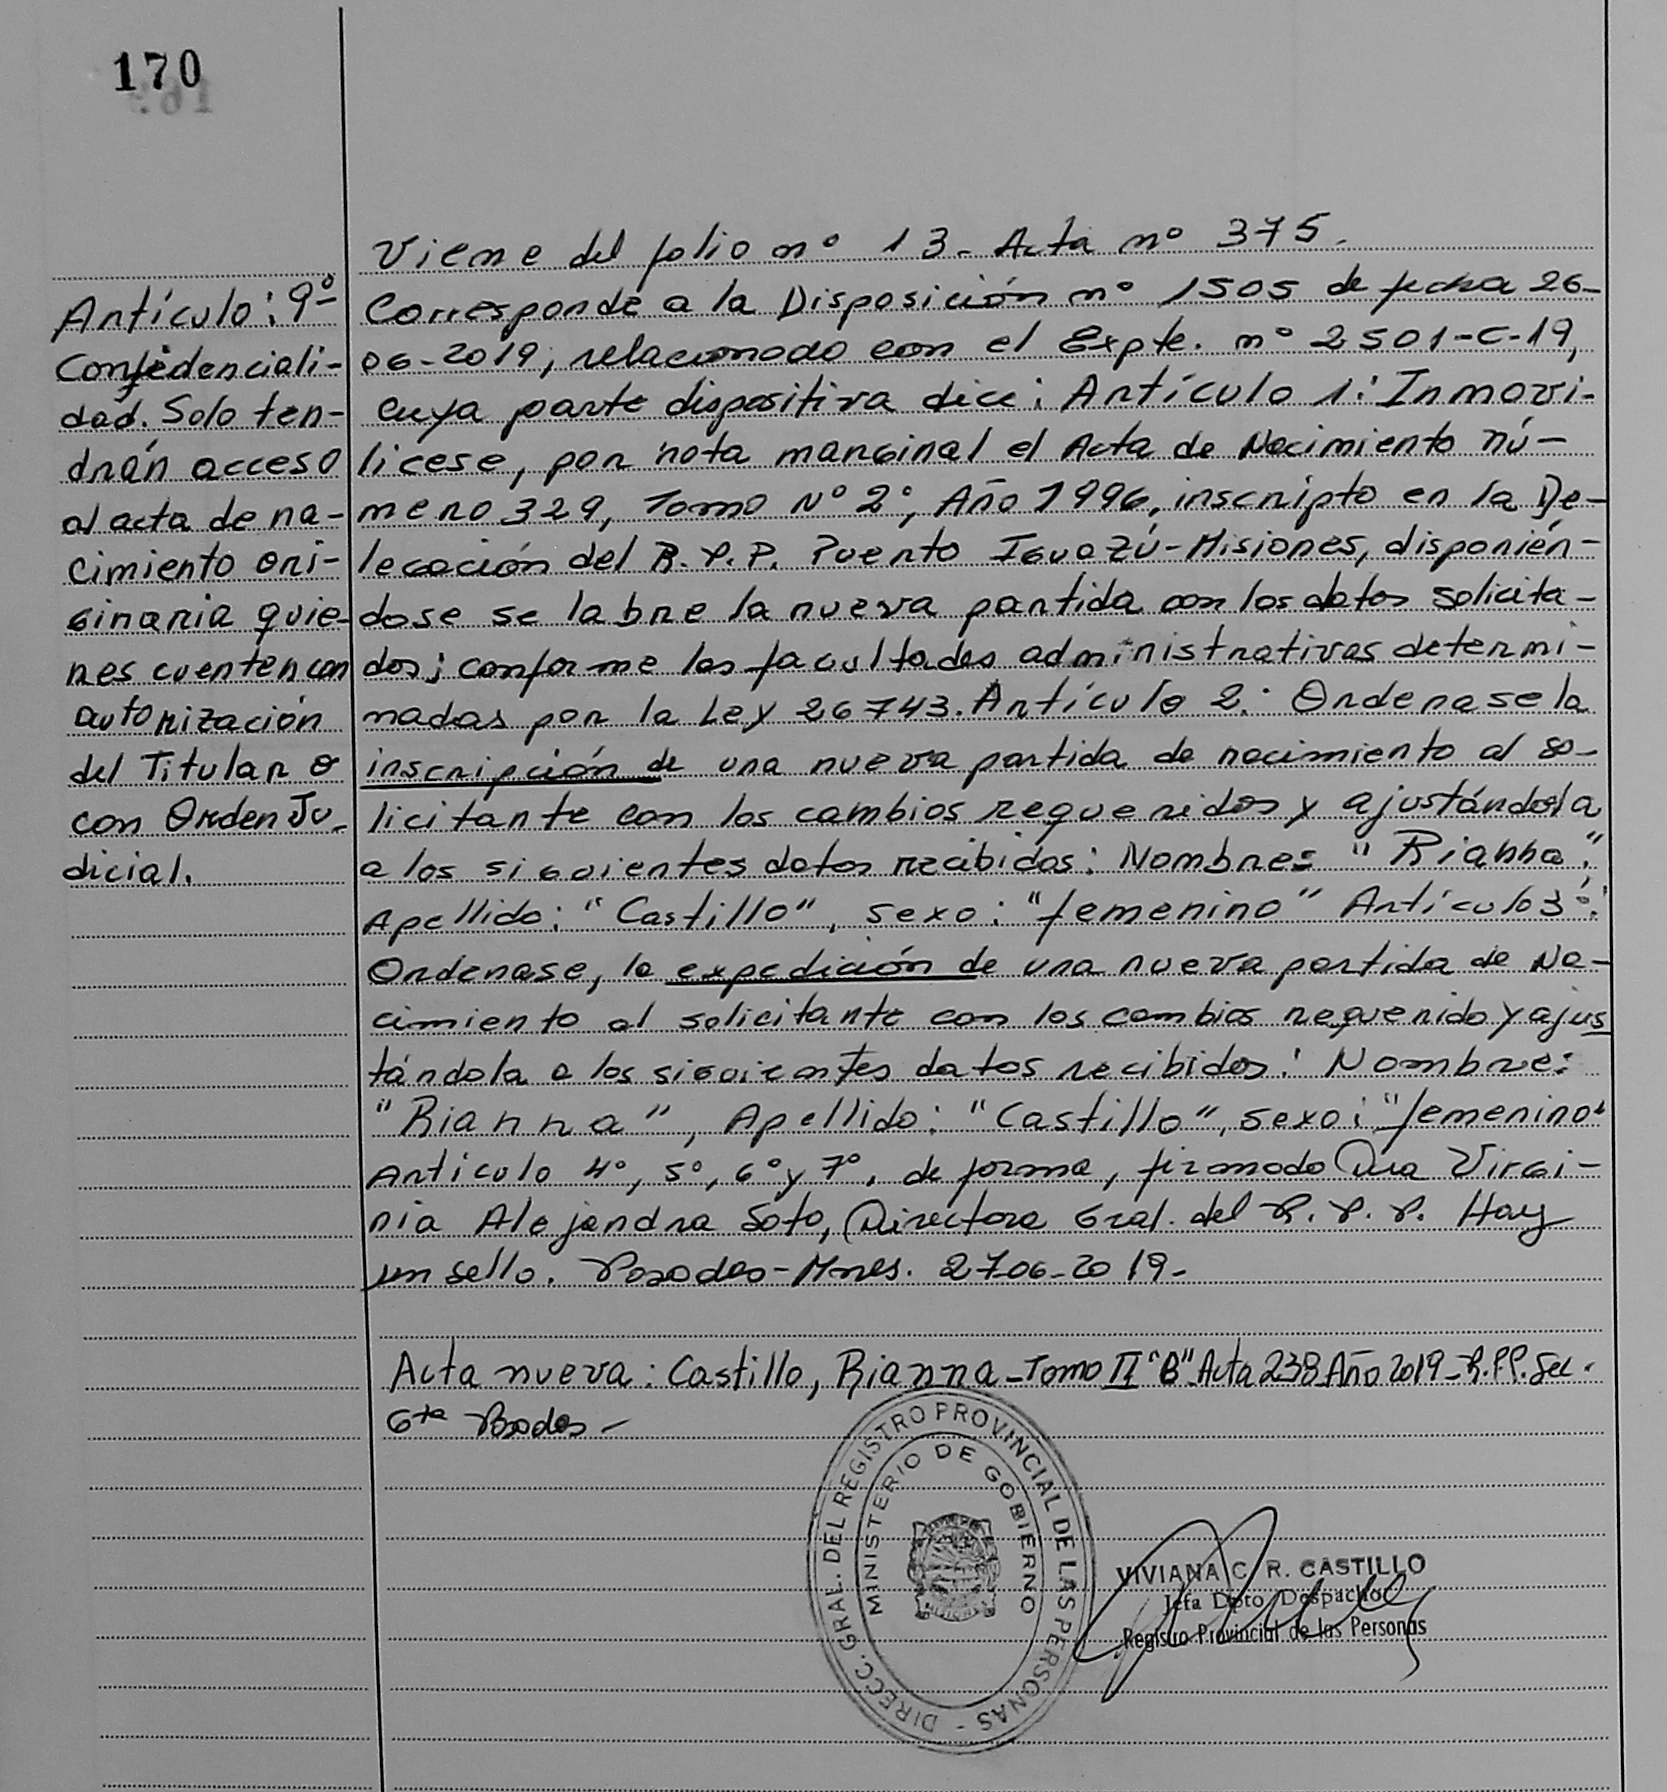 170
Viene del folio nº 13. Acta nº 375.
Artículo: 9º
Confedenciali-
dad. Solo ten-
drán acceso
al acta de na-
cimiento ori-
ginaria quie-
nes cuenten con
autorización
del Titular o
con Orden Ju-
dicial.
Corresponde a la Disposición nº 1505 de fecha 26-
06-2019, relacionado con el Expte. nº 2501-C-19,
cuya parte dispositiva dice: Artículo 1: Inmovi-
licese, por nota marginal el Acta de Nacimiento nú-
mero 329, Tomo Nº 2º, Año 1996, inscripto en la De-
legación del R.P.P. Puerto Iguazú-Misiones, disponién-
dose se labre la nueva partida con los datos solicita-
dos; conforme las facultades administrativas determi-
nadas por la Ley 26743. Artículo 2: Ordenase la
inscripción de una nueva partida de nacimiento al so-
licitante con los cambios requeridos y ajustándola
a los siguientes datos recibidos: Nombres "Rianna".
Apellido: "Castillo", sexo: "femenino" Artículo 3º:
Ordenase, la expedición de una nueva partida de Na-
cimiento al solicitante con los cambios requerido y ajus
tándola a los siguientes datos recibidos: Nombre:
"Rianna", Apellido: "Castillo", sexo: "femenino"
Artículo 4º, 5º, 6º y 7º, de forma, firmado Dra Virgi-
nia Alejandra Soto, Directora Gral. del R.P.P. Hay
un sello. Posadas-Mnes. 27-06-2019-
Acta nueva: Castillo, Rianna-Tomo II "B" Acta 238 Año 2019-R.P.P. Sec.
6ta Posadas-
DIRECC. GRAL. DEL REGISTRO PROVINCIAL DE LAS PERSONAS -
MINISTERIO DE GOBIERNO
VIVIANA C. R. CASTILLO
Jefa Dpto Despacho
Registro Provincial de las Personas